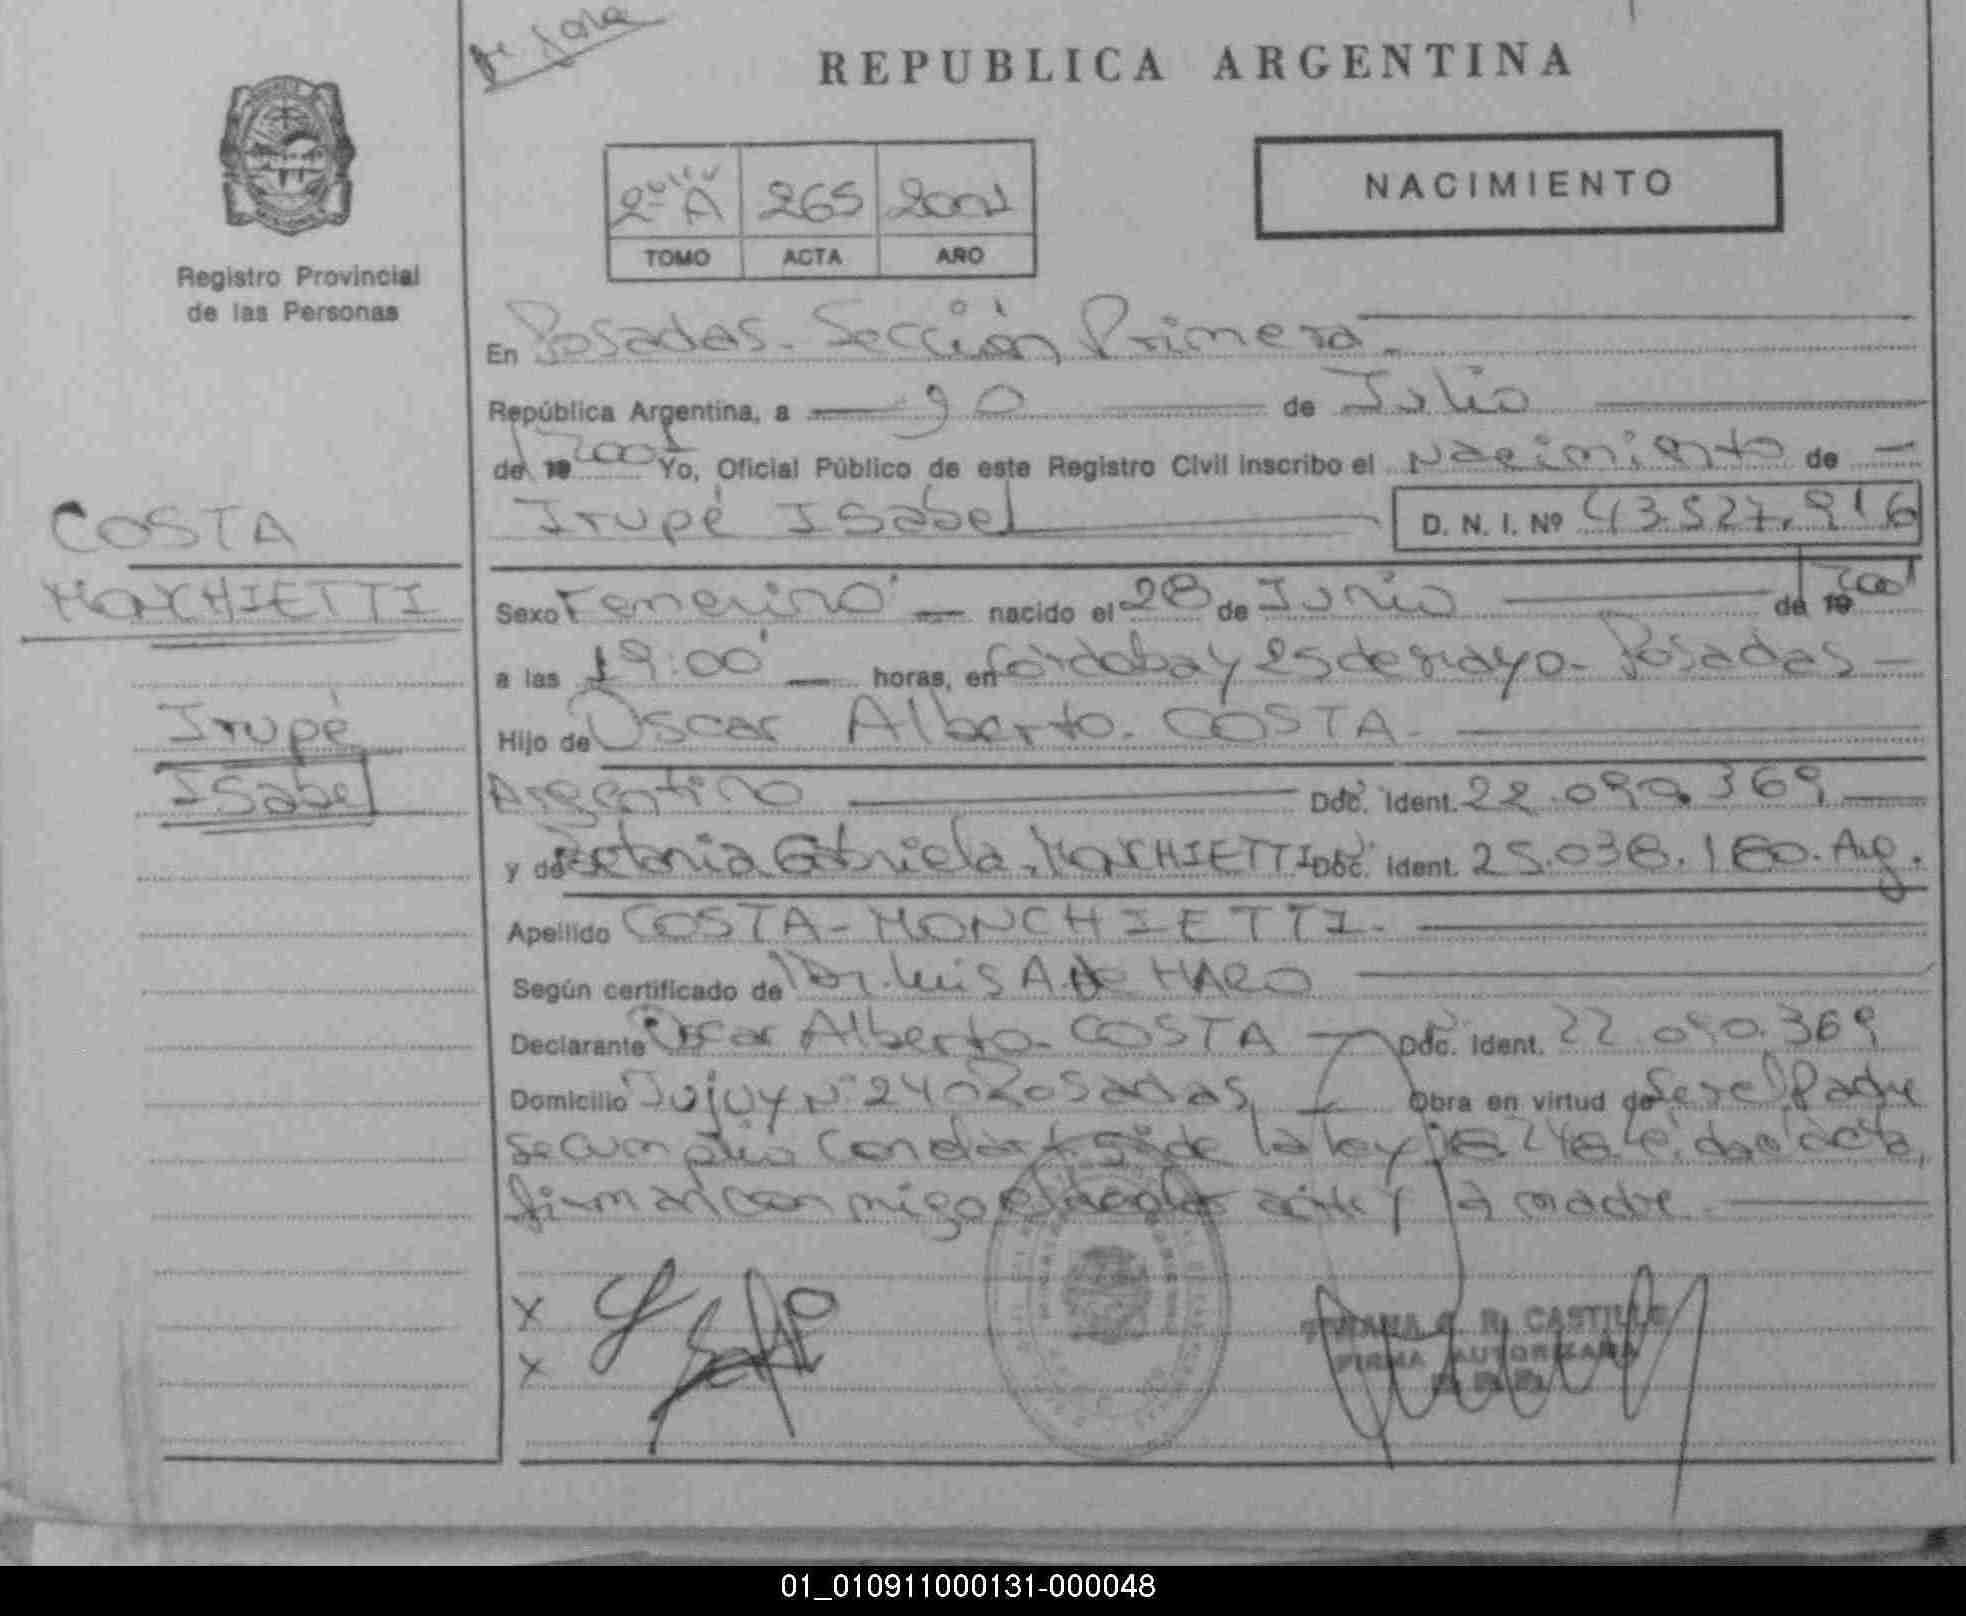 REPUBLICA ARGENTINA
NACIMIENTO
2º A 265 2001
TOMO ACTA AÑO
Registro Provincial
de las Personas
En Posadas - Sección Primera -
República Argentina, a de Julio
de 19 2001 Yo, Oficial Público de este Registro Civil inscribo el Nacimiento de
Irupé Isabel D. N. I. Nº 43.527.916
COSTA
MONCHIETTI
Irupé
Isabel
Sexo Femenino nacido el 28 de Junio de 19 2001
a las 19:00 horas, en Córdoba y 25 de Mayo - Posadas -
Hijo de Oscar Alberto - COSTA -
Argentino Doc. Ident. 22.090.369
y de Gabriela - MONCHIETTI Doc. Ident. 25.038.180 - Arg.
Apellido COSTA - MONCHIETTI -
Según certificado de Dr. Luis A. de HARO
Declarante Oscar Alberto - COSTA Doc. Ident. 22.090.369
Domicilio Jujuy Nº 240 Posadas Obra en virtud de Ser el Padre
se cumplió con el art. 5º de la ley 18.248 leída el acta,
firman conmigo el declarante y la madre
X
X
R. CASTILLO
FIRMA AUTORIZADA
01_010911000131-000048